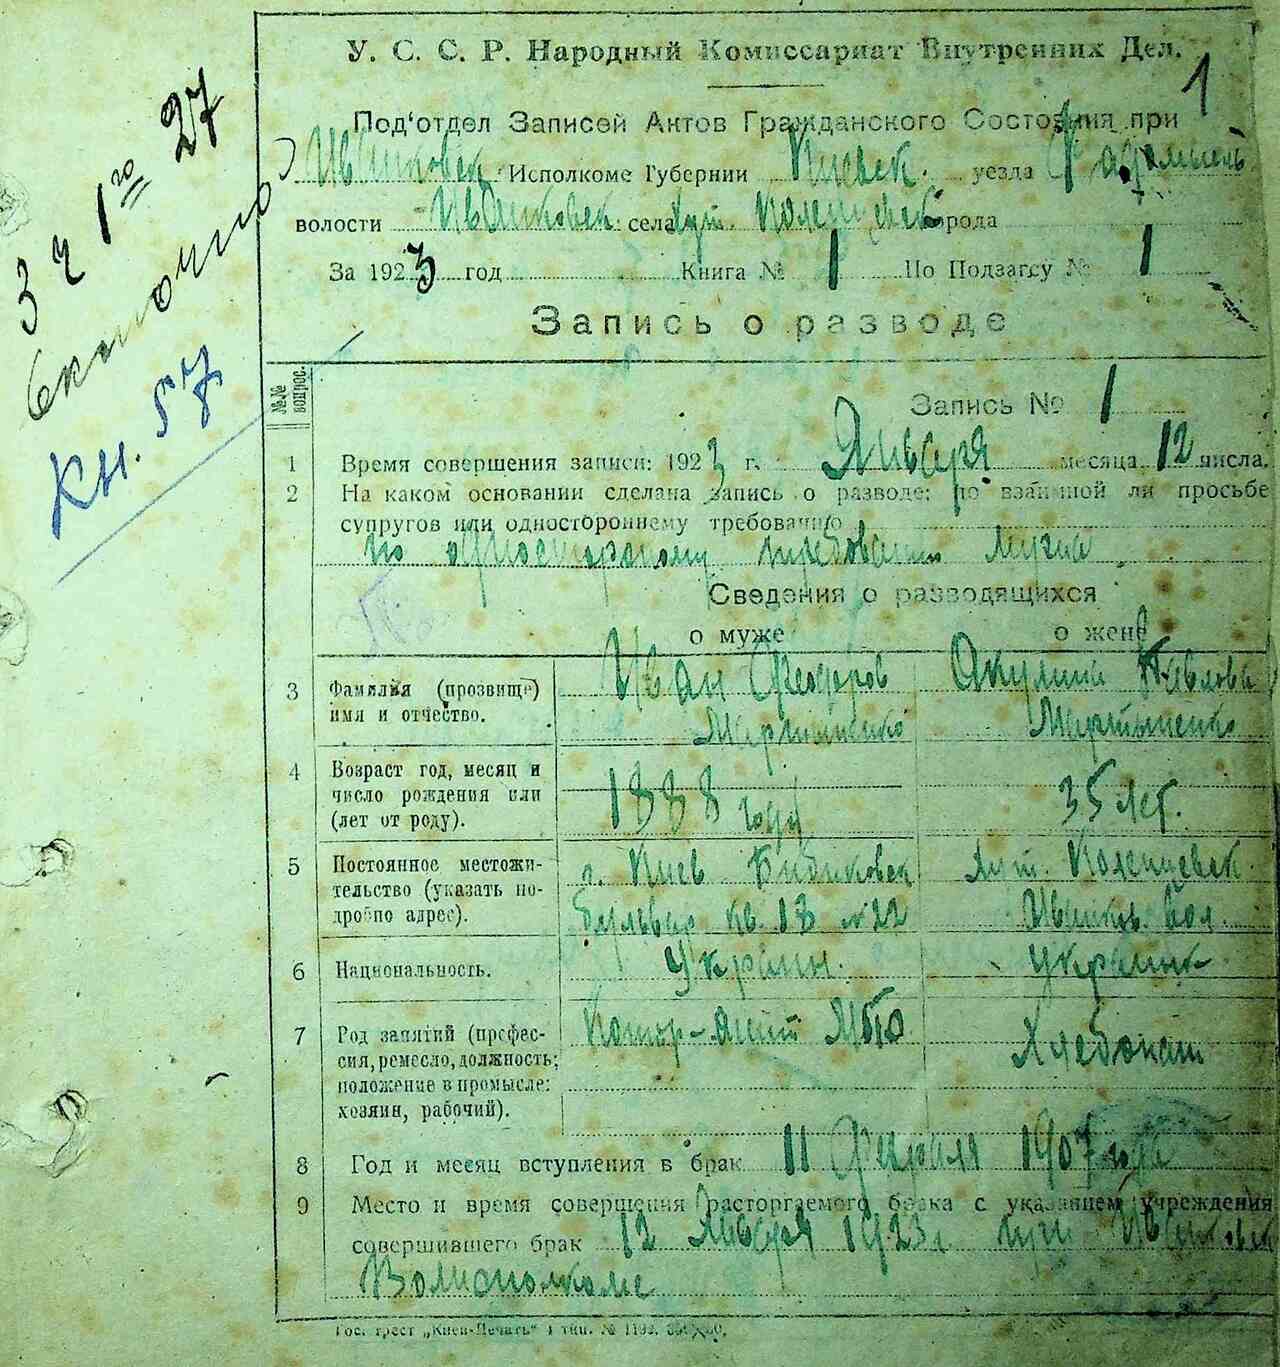 У. С. С. Р. Народный Комиссариат Внутренних Дел.
1
Под‘отдел Записей Актов Гражданского Состояния при
Иванковск. Исполкоме Губернии Киевск. уезда Радомысль
волости Иванковск. села хут. города
За 1923 год Книга № 1 По Подзагсу № 1
Запись о разводе
27
Кн. 57
№№ вопрос.
Запись № 1
1 Время совершения записи: 1923 г. Января месяца 12 числа.
2 На каком основании сделана запись о разводе: по взаимной ли просьбе
супругов или одностороннему требованию
по одностороному требованию мужа
Сведения о разводящихся
о муже о жене
3 Фамилия (прозвище) имя и отчество.
Иван Феодоров Мартыненко
Акулина Павлова Мартыненко
4 Возраст год, месяц и число рождения или (лет от роду).
1888 году
35 лет.
5 Постоянное местожительство (указать подробно адрес).
г. Киев Бибиковск бульвар кв. 18 № 22
хут. Иванков. вол.
6 Национальность.
Украин.
Украинк
7 Род занятий (профессия, ремесло, должность; положение в промысле: хозяин, рабочий).
Хлебопаш
8 Год и месяц вступления в брак 11 Февраля 1907 года
9 Место и время совершения расторгаемого брака с указанием учреждения
совершившего брак 12 Января 1923 г при Иванковск
Волисполкоме
Гос. трест „Киев-Печать“ 4 тип. № 1192.